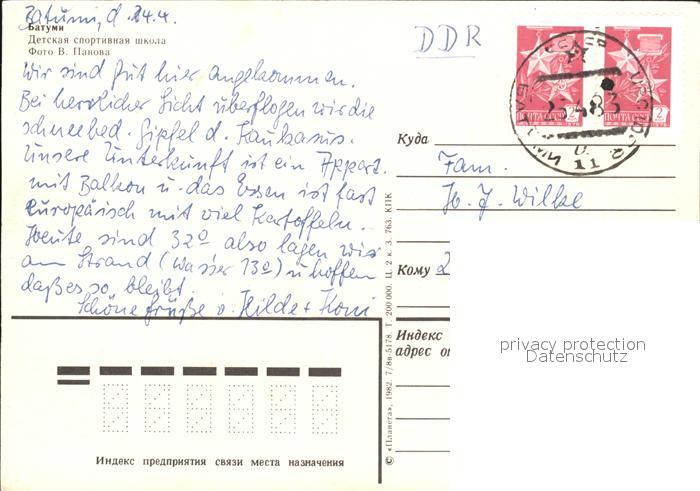 Batumi, d. 24.4.
Батуми
Детская спортивная школа
Фото В. Панова
Wir sind gut hier angekommen.
Bei herrlicher Sicht überflogen wir die
schneebed. Gipfel d. Kaukasus.
Unsere Unterkunft ist ein Appart.
mit Balkon u. das Essen ist fast
Europäisch mit viel Kartoffeln.
Heute sind 32° also lagen wir
am Strand (Wasser 13°) u hoffen
daß es so bleibt.
Schöne Grüße v. Hilde + Koni
DDR
ПОЧТА СССР
ПОЧТА
2
25.4.83
11
Куда
Fam.
H. J. Wilke
Кому
Индекс
адрес
privacy protection
Datenschutz
Индекс предприятия связи места назначения
© «Планета», 1982. 7/8в-5178. Т. 200 000. Ц. 2 к. З. 763. КПК